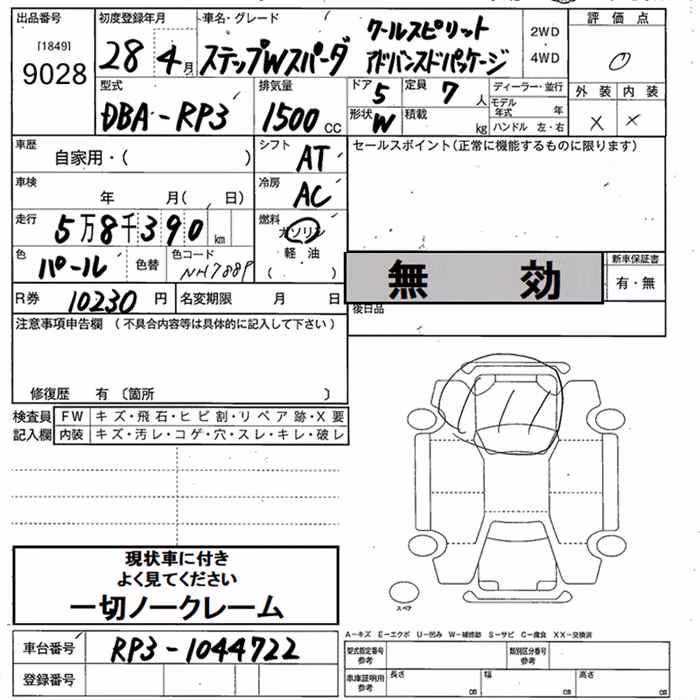 出品番号
[1849]
9028
初度登録年月
28 4月
車名・グレード
ステップWスパーダ
クールスピリット
アドバンスドパッケージ
2WD
4WD
評価点
0
外装 内装
× ×
型式
DBA-RP3
排気量
1500cc
ドア
5
定員
7人
形状
W
積載
kg
ディーラー・並行
モデル年式 年
ハンドル 左・右
車歴
自家用・( )
シフト
AT
セールスポイント(正常に機能するものに限ります)
車検
年 月( 日)
冷房
AC
走行
5万8千390km
燃料
ガソリン
軽油
( )
色
パール
色替
色コード
NH788P
無 効
新車保証書
有・無
R券 10230円
名変期限 月 日
後日品
注意事項申告欄 (不具合内容等は具体的に記入して下さい)
修復歴 有〔箇所 〕
検査員記入欄
FW キズ・飛石・ヒビ割・リペア跡・X要
内装 キズ・汚レ・コゲ・穴・スレ・キレ・破レ
現状車に付き
よく見てください
一切ノークレーム
スペア
車台番号 RP3-1044722
登録番号
A-キズ E-エクボ U-凹み W-補修跡 S-サビ C-腐食 XX-交換済
型式指定番号参考
類別区分番号参考
車庫証明用参考
長さ cm
幅 cm
高さ cm